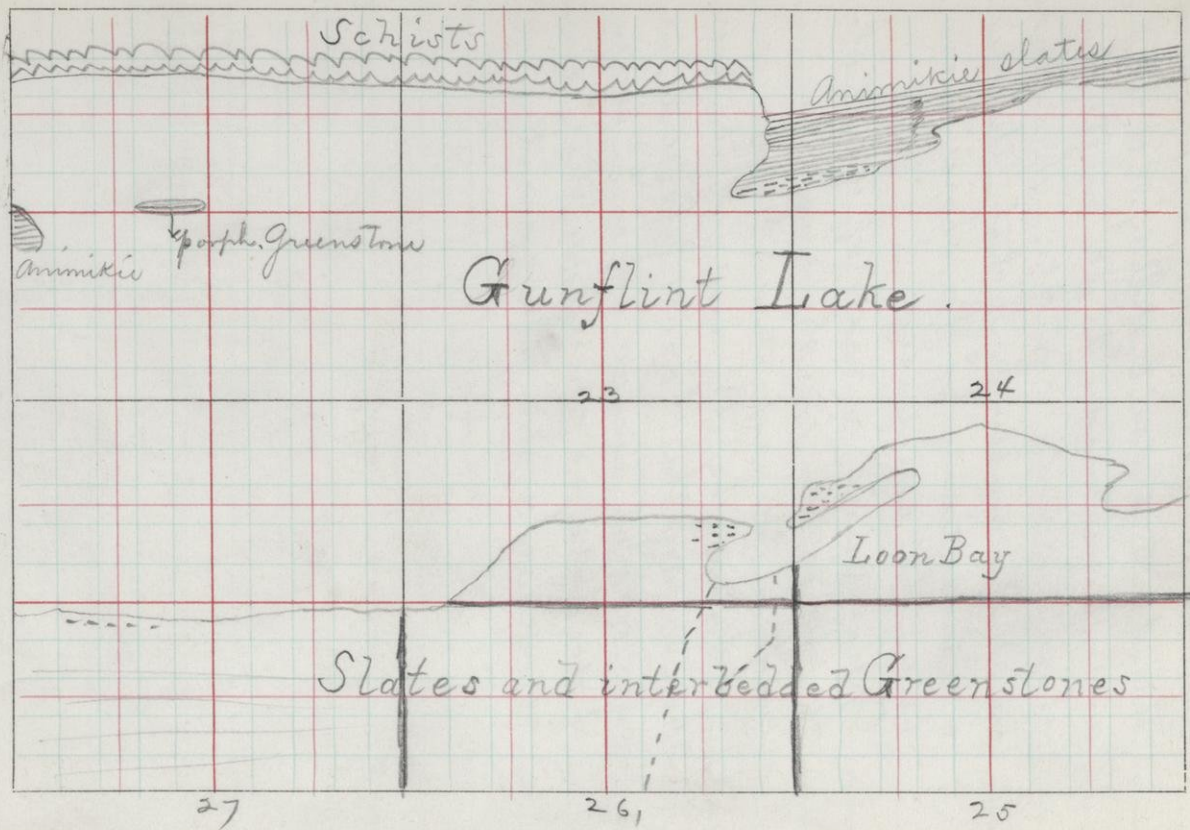 Schists
Animikie slates
porph. Greenstone
Animikie
Gunflint Lake.
23
24
Loon Bay
Slates and interbedded Greenstones
27
26,
25